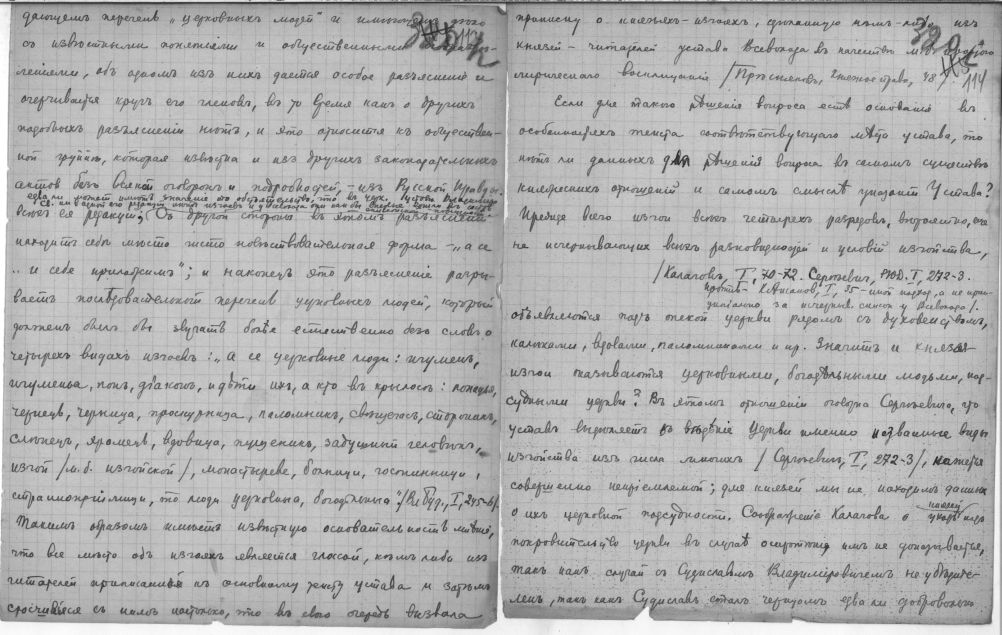 дающемъ перечень „церковныхъ людей" и имѣющемъ дѣло
съ извѣстными понятіями и общественными
леніями, объ одномъ изъ нихъ дается особое разъясненіе и
очерчивается кругъ его членовъ, въ то время какъ о другихъ
подобныхъ разъясненій нѣтъ, и это относится къ обществен-
ной группѣ, которая извѣстна и изъ другихъ законодательныхъ
актовъ безъ всякой оговорки и подробностей, – изъ Русской Правды.
едва ли можетъ имѣть значеніе то обстоятельство, что въ Устава Владимира
всѣхъ ея редакцій. Съ другой стороны въ этомъ разъясненіи
находитъ себѣ мѣсто чисто повѣствовательная форма – „а се
.. и себе приложимъ"; и наконецъ это разъясненіе разры-
ваетъ послѣдовательный перечень церковныхъ людей, который
долженъ былъ бы звучать болѣе естественно безъ словъ о
четырехъ видахъ изгоевъ: „а се церковные люди: игуменъ,
игуменья, попъ, дьяконъ, и дѣти ихъ, а кто въ крылосѣ: попадья,
чернецъ, черница, проскурница, паломникъ, свѣщегасъ, сторожникъ,
слѣпецъ, хромецъ, вдовица, пущеникъ, задушный человѣкъ,
изгой /м.б. изгойской/, монастыреве, больници, гостинници,
страннопріимници, то люди церковныа, богадѣльныа" /Вл. Буд., I, 245-6/.
Такимъ образомъ имѣетъ извѣстную основательность мнѣніе,
что все мѣсто объ изгояхъ является глоссой, кѣмъ либо изъ
читателей приписанной къ основному тексту устава и затѣмъ
сросшейся съ нимъ настолько, что въ свою очередь вызвала
320
114
приписку о князьяхъ-изгояхъ, сдѣланную кѣмъ-либо изъ
князей – читателей устава Всеволода въ качествѣ
лирическаго восклицанія /Прѣсняковъ, Княжое право, 48
Если для такого рѣшенія вопроса есть основанія въ
особенностяхъ текста соотвѣтствующаго мѣста устава, то
нѣтъ ли данныхъ для рѣшенія вопроса въ самомъ существѣ
княжескихъ отношеній и самомъ смыслѣ указаній Устава?
Прежде всего изгои всѣхъ четырехъ разрядовъ, вѣроятно, еще
не исчерпывающихъ всѣхъ разновидностей и условій изгойства,
/Калачовъ, I, 70-72. Сергѣевичъ, РЮД. I, 272-3.
объявляются подъ опекой церкви рядомъ съ духовенствомъ,
калѣками, вдовами, паломниками и пр. Значитъ и князья-
изгои оказываются церковными, богадѣльными людьми, под-
судными церкви? Въ этомъ отношеніи оговорка Сергѣевича, что
уставъ выдѣляетъ въ вѣдѣніе церкви именно названные виды
изгойства изъ числа многихъ /Сергѣевичъ, I, 272-3/, кажется
совершенно непріемлемой; для князей мы не находимъ данныхъ
о ихъ церковной подсудности. Соображеніе Калачова о
покровительство церкви въ случаѣ осиротѣнія имъ не доказывается,
такъ какъ случай съ Судиславомъ Владиміровичемъ не убѣдите-
ленъ, такъ какъ Судиславъ сталъ чернцомъ едва ли добровольно